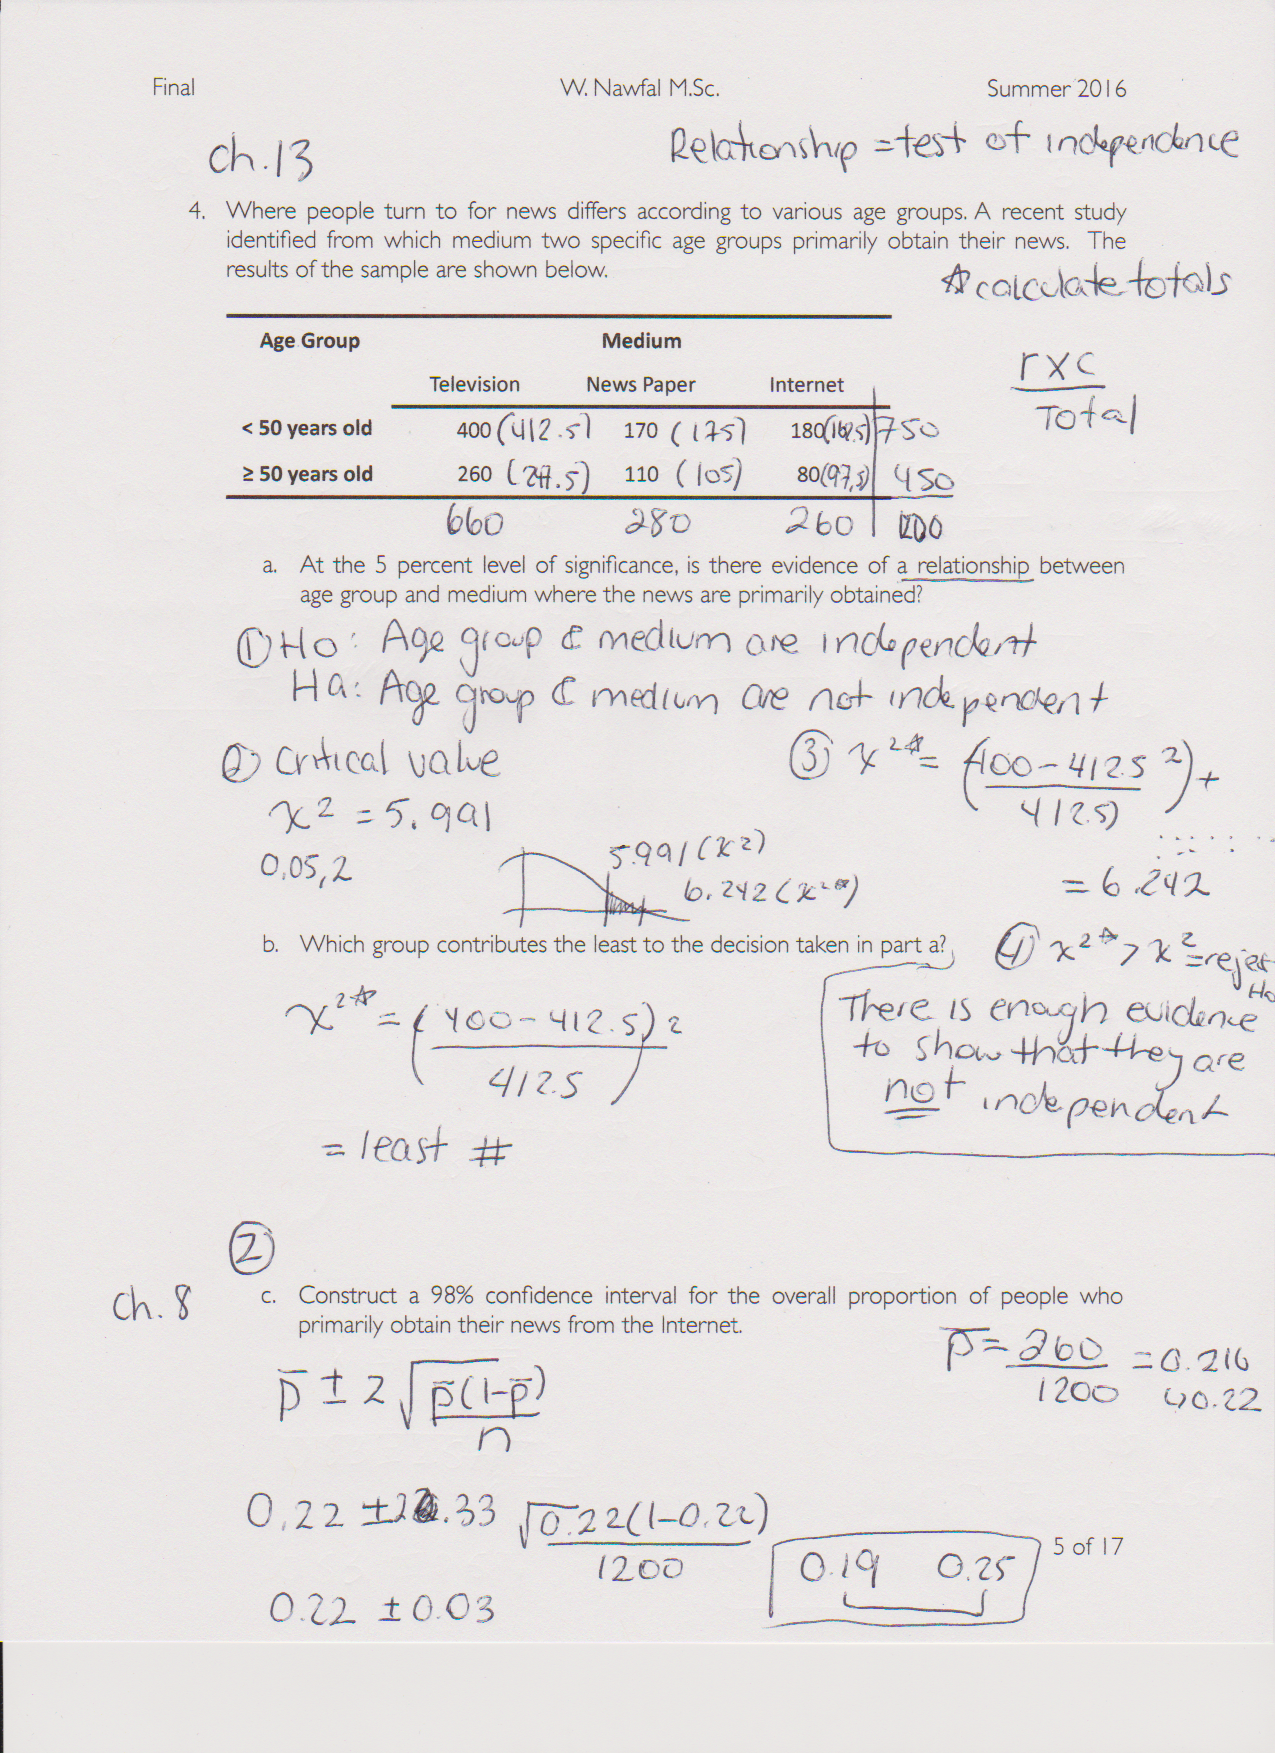 Final W. Nawfal M.Sc. Summer 2016
ch.13 Relationship = test of independence
4. Where people turn to for news differs according to various age groups. A recent study
identified from which medium two specific age groups primarily obtain their news. The
results of the sample are shown below.
☆ calculate totals
Age Group Medium
Television News Paper Internet
r x c
Total
< 50 years old 400 (412.5) 170 (175) 180 (162.5) 750
≥ 50 years old 260 (247.5) 110 (105) 80 (97.5) 450
660 280 260 1200
a. At the 5 percent level of significance, is there evidence of a relationship between
age group and medium where the news are primarily obtained?
① Ho: Age group & medium are independent
Ha: Age group & medium are not independent
② Critical value
x² = 5.991
0.05,2
③ x²* = (400-412.5²) +
412.5)
= 6.242
5.991 (x²)
6.242 (x²*)
b. Which group contributes the least to the decision taken in part a?
④ x²* > x² = reject
Ho
There is enough evidence
to show that they are
not independent
x²* = (400-412.5)²
412.5
= least #
②
Ch. 8
c. Construct a 98% confidence interval for the overall proportion of people who
primarily obtain their news from the Internet.
p̄ = 260 = 0.216
1200 ↳0.22
p̄ ± z √p̄(1-p̄)
n
0.22 ± 2.33 √0.22(1-0.22)
1200
0.22 ± 0.03
0.19 0.25
5 of 17